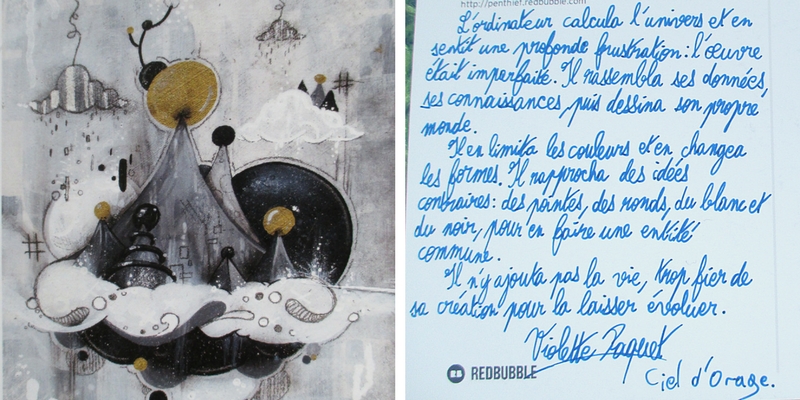 http://penthief.redbubble.com
L'ordinateur calcula l'univers et en
sentit une profonde frustration : l'œuvre
était imparfaite. Il rassembla ses données,
ses connaissances, puis dessina son propre
monde.
Il en limita les couleurs et en changea
les formes. Il rapprocha des idées
contraires : des pointes, des ronds, du blanc et
du noir, pour en faire une entité
commune.
Il n'y ajouta pas la vie, trop fier de
sa création pour la laisser évoluer.
Violette Paquet
REDBUBBLE
Ciel d'Orage.